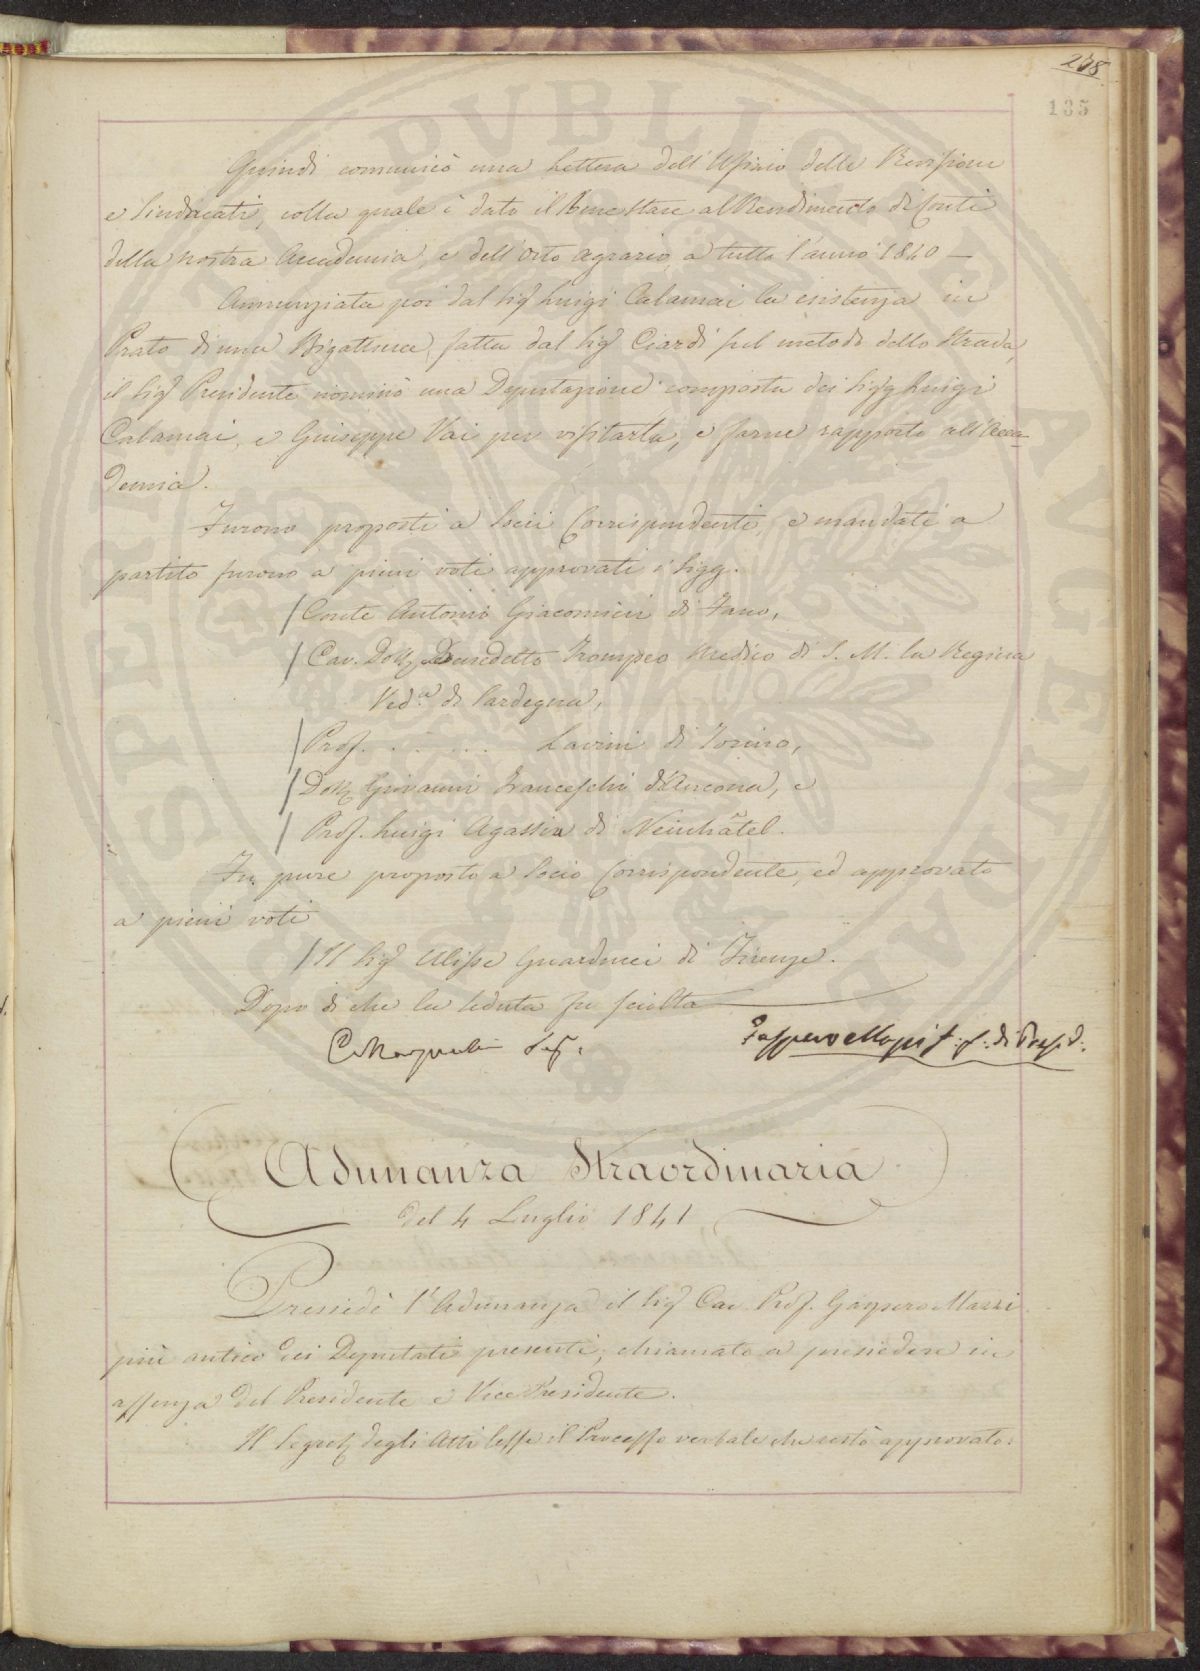 238
135
Quindi comunicò una Lettera dell'Ufizio delle Revisioni
e Sindacati, colla quale è dato il Benestare al Rendimento di Conti
della nostra Accademia, e dell'Orto agrario a tutto l'anno 1840 —
Annunziata poi dal Sigr Luigi Calamai la esistenza in
Prato di una Bigattiera fatta dal Sigr Ciardi sul metodo dello Strada,
il Sigr Presidente nominò una Deputazione composta dei Sigg Luigi
Calamai, e Giuseppe Vai per visitarla, e farne rapporto all'Acca-
demia.
Furono proposti a Socii Corrispondenti, e mandati a
partito furono a pieni voti approvati i Sigg.
/ Conte Antonio Giacomini di Fano,
/ Cav. Dottr Benedetto Trompeo Medico di S. M. la Regina
Ved.a di Sardegna,
/ Prof. . . . . . Lavini di Torino,
/ Dottr Giovanni Franceschi d'Ancona, e
/ Prof. Luigi Agassiz di Neuchâtel.
Fu pure proposto a Socio Corrispondente, ed approvato
a pieni voti
/ Il Sigr Ulisse Guarducci di Firenze.
Dopo di che la seduta fu sciolta
Segr.
f. f. di Presid.
Adunanza Straordinaria
del 4 Luglio 1841
Pressiedè l'Adunanza il Sigr Cav. Prof. Gaspero Mazzi
più antico dei Deputati presenti, chiamato a pressiedere in
assenza del Presidente e VicePresidente.
Il Segretr degli Atti lesse il Processo verbale che restò approvato: